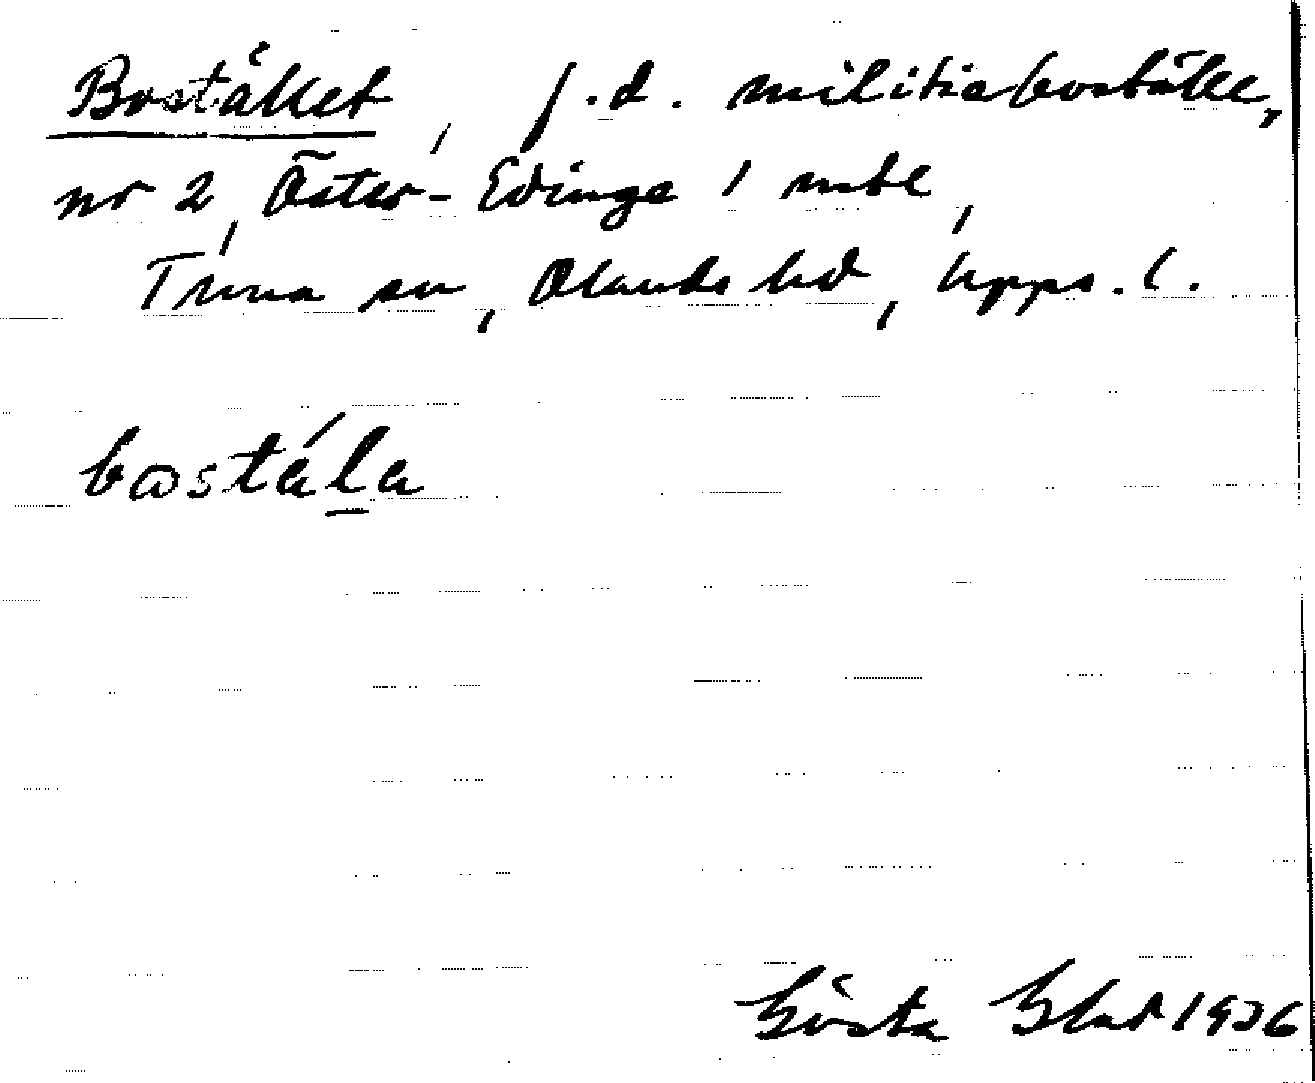 Bostället, f.d. militiaboställe,
nr 2, Öster-Edinge 1 mtl,
Tuna sn, Olands hd, Upps. l.
bωstála
Gösta Blad 1936